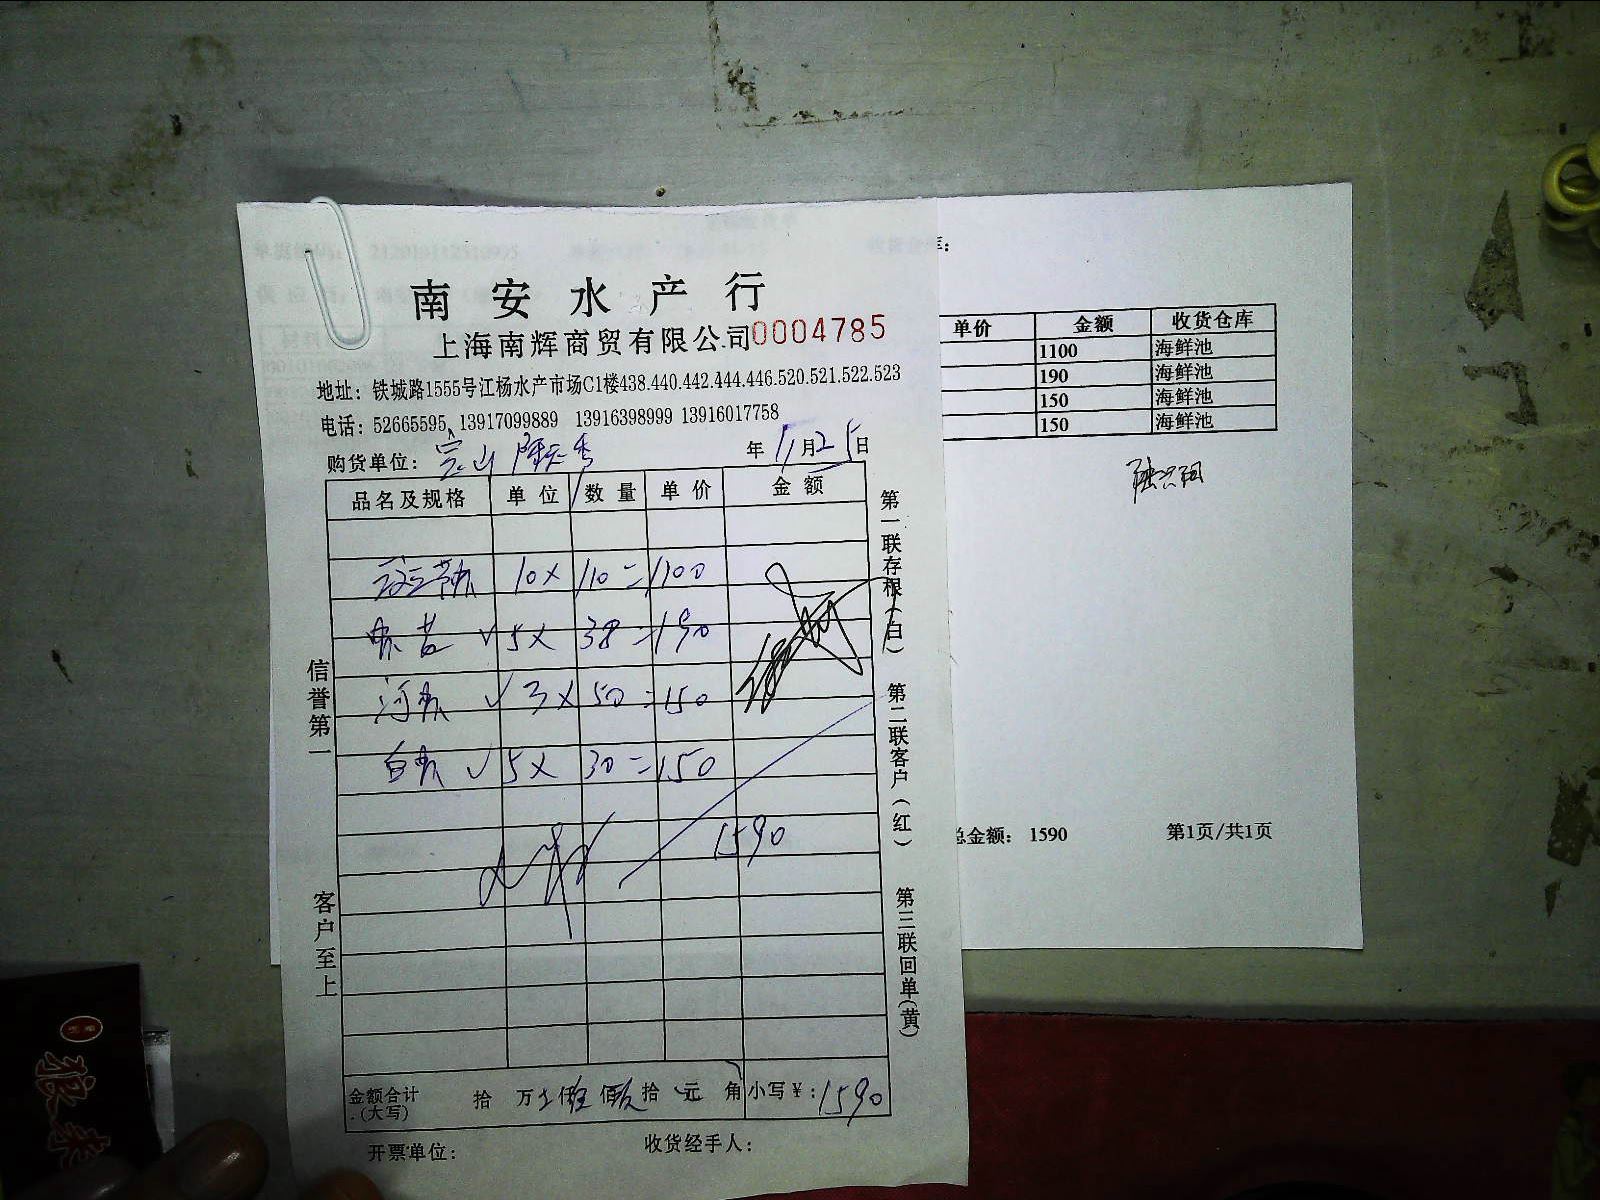 南安水产行
上海南辉商贸有限公司 0004785
地址：铁城路1555号江杨水产市场C1楼438.440.442.444.446.520.521.522.523
电话：52665595、13917099889 13916398999 13916017758
购货单位：宝山 年11月25日
品名及规格 单位 数量 单价 金额
10× 110=1100
✓ 5× 38=190
河虾 ✓ 3× 50=150
白虾 ✓ 5× 30=150
1590
金额合计(大写) 拾 万 仟 佰 拾 元 角 小写￥：1590
开票单位： 收货经手人：
信誉第一
客户至上
第一联存根(白)
第二联客户(红)
第三联回单(黄)
库：
单价 金额 收货仓库
1100 海鲜池
190 海鲜池
150 海鲜池
150 海鲜池
总金额： 1590 第1页/共1页